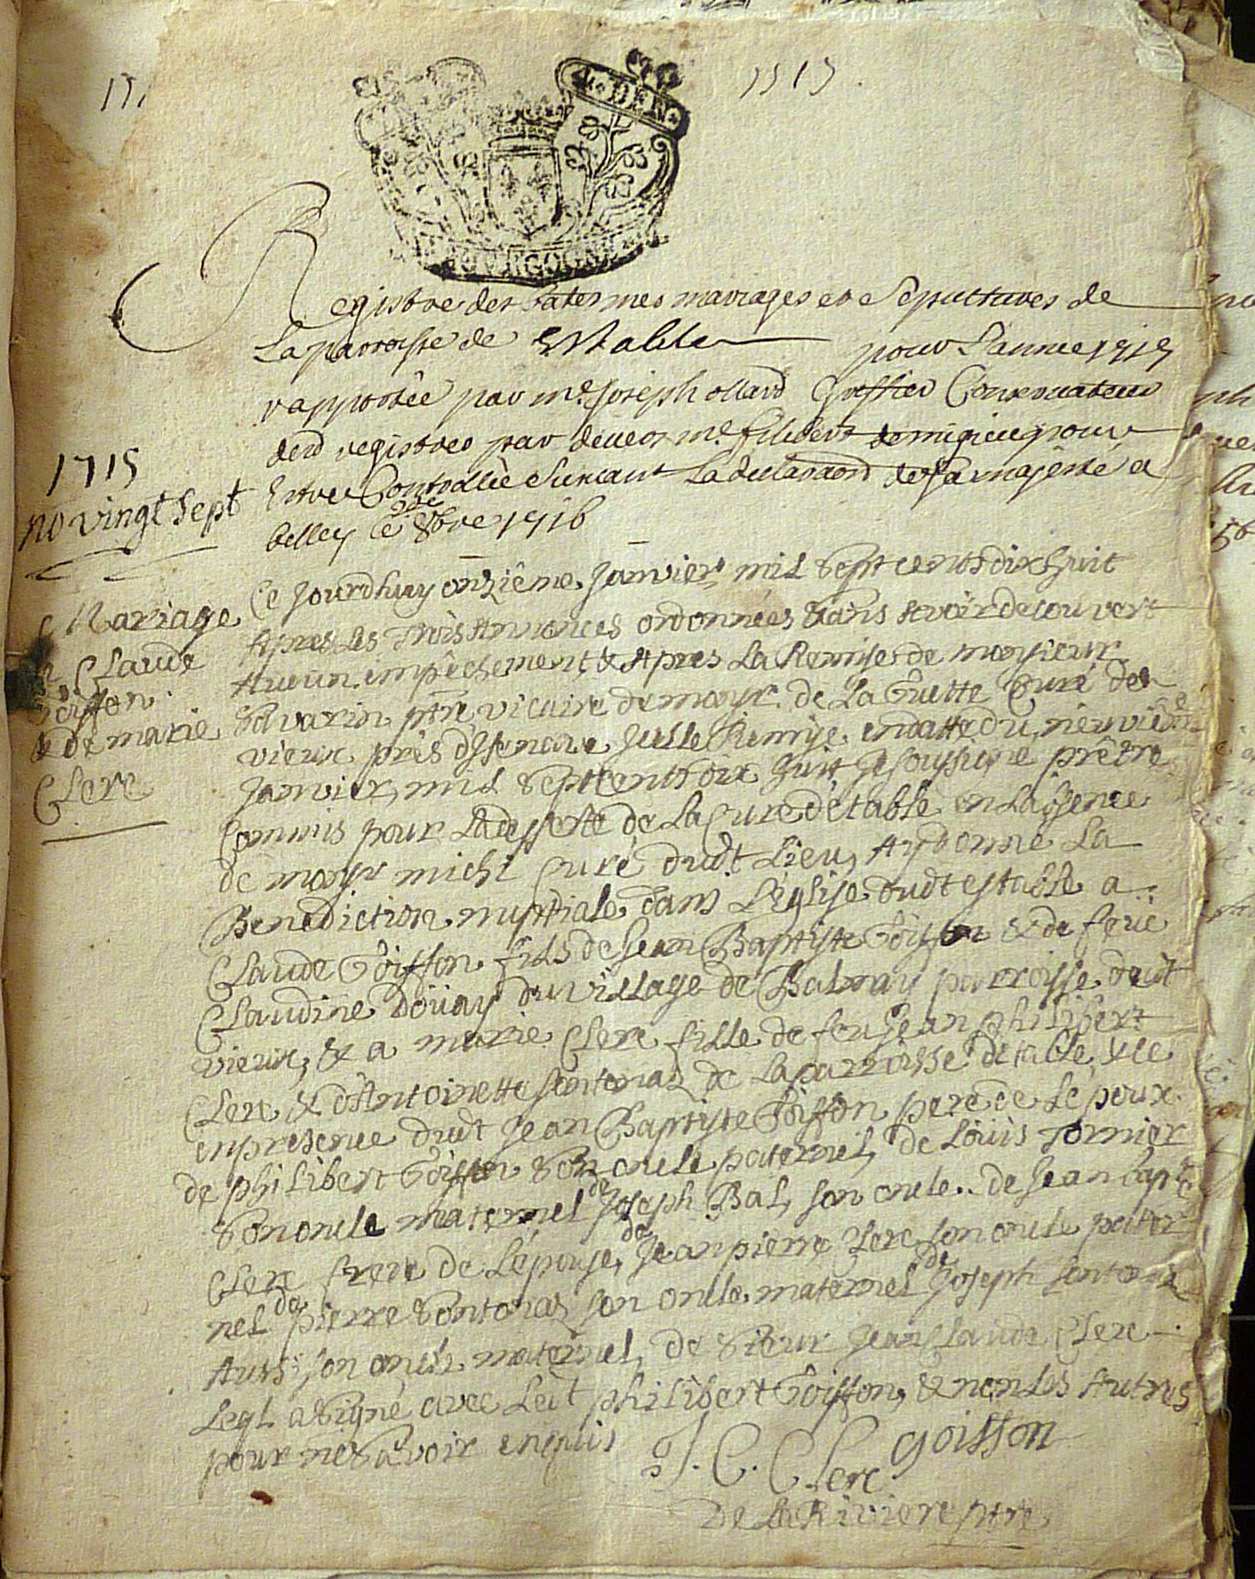 171
1715
4. DEN.
BOURGOGNE
Registre des Batesmes mariages et Sepultures de
La parroisse de Estable pour L'année 1715
rapportée par me. Joseph ollard Greffier Conservateur
desd registres par devers me. filibert demigieu pour
Estre Controllée Suivant La declaraōn de sa majesté a
belley ce 8bre 1716
1715
no vingt sept
Mariage
Claude
Goiffon
& de marie
Clerc
Ce Jourdhuy onzième Janvier mil Sept cents dix huit
Apres Les Trois Annonces ordonnées Sans Avoir decouvert
Aucun impêchement & Apres La Remise de monsieur
Savarin ptre vicaire de monsr. de La Guette Curé de
vieux près d'Isenave Jcelle Remise en datte du neuvième
Janvier, mil Sept cents dix huit Je soussigné prêtre
Commis pour La desserte de La Cure d'étable en L'absence
de monsr michl Curé dudt Lieu, Ay donné La
Benediction nuptiale dans L'église dudt estable a
Claude Goiffon fils de Jean Baptiste Goiffon & de feüe
Claudine Doüay du village de Balmay parroisse dudt
vieux, & a marie Clerc fille de feu Jean philibert
Clerc & d'Antoinette Sentonaz de La parroisse d'étable, & ce
en presence dudt Jean Baptiste Goiffon pere de L'époux.
de philibert Goiffon Son oncle paternel, de Loüis Tornier
Son oncle maternel de Joseph Bal, son oncle.. de Jean bapte
Clerc frere de L'épouse, de Jean pierre Clerc son oncle pater
nel de pierre Sontonaz son oncle maternel de Joseph Sentonaz
Aussi son oncle maternel, de Sieur Jean Claude Clerc
Leql a Signé avec Ledt philibert Goiffon, & non Les Autres
pour ne Sçavoir enquis
J. C. Clerc goiffon
De La Riviere ptre